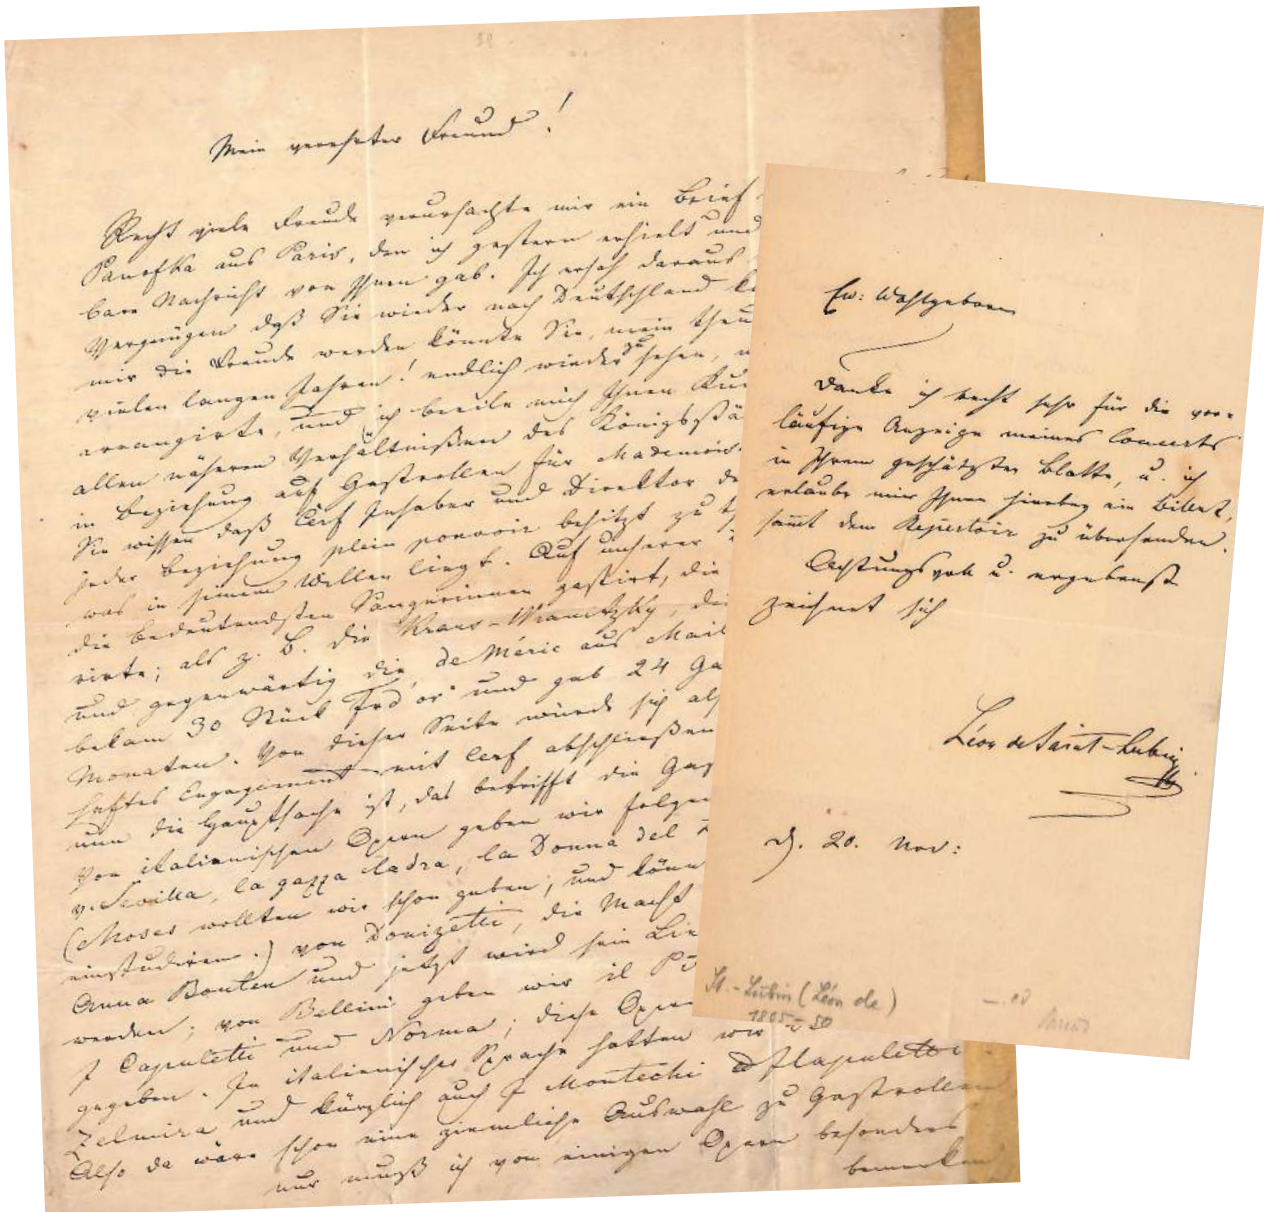 38
Mein verehrter Freund!
Recht viele Freude verursachte mir ein Brief
Panofka aus Paris, den ich gestern erhielt und
bare Nachricht von Ihnen gab. Ich ersah daraus
Vergnügen daß Sie wieder nach Deutschland
mir die Freude werden könnte Sie, mein
vielen langen Jahren! endlich wieder zu sehen,
arrangirte, und ich beeile mich Ihnen
allen näheren Verhältnißen des
in Beziehung auf Gastrollen für
Sie wissen daß Cerf Inhaber und Direktor
jeder Beziehung plein pouvoir besitzt zu
was in seinem Willen liegt. Auf unserer
die bedeutendsten Sängerinnen gastirt, die
rirte; als z. B. die Kraus-Wranitzky,
und gegenwärtig die de Méric aus
bekam 30 Stück Frd'or und gab 24
Monaten. Von dieser Seite würde sich
haftes Engagement mit Cerf abschließen
nun die Hauptsache ist, das betrifft die
Von italienischen Opern geben wir
v. Sevilla, la gazza ladra, la Donna del
(Moses wollten wir schon geben; und
einstudiren.) von Donizetti, die Macht
Anna Boulen und jetzt wird sein
werden; von Bellini geben wir il
I Capuletti und Norma; diese
gegeben. In italienischer Sprache hatten wir
Zelmira und kürzlich auch I Montechi Capuletti
Also da wäre schon eine ziemliche Auswahl zu Gastrollen
nur muß ich von einigen Opern besonders
bemerken
Ew: Wohlgeboren
danke ich recht sehr für die vor-
läufige Anzeige meines Concerts
in Ihrem geschätzten Blatte, u. ich
erlaube mir Ihnen hierbey ein Billet,
sammt dem Repertoir zu übersenden.
Achtungsvoll u. ergebenst
zeichnet sich
Léon de Saint-Lubin
d. 20. Nov:
St.-Lubin (Léon de)
1805-50